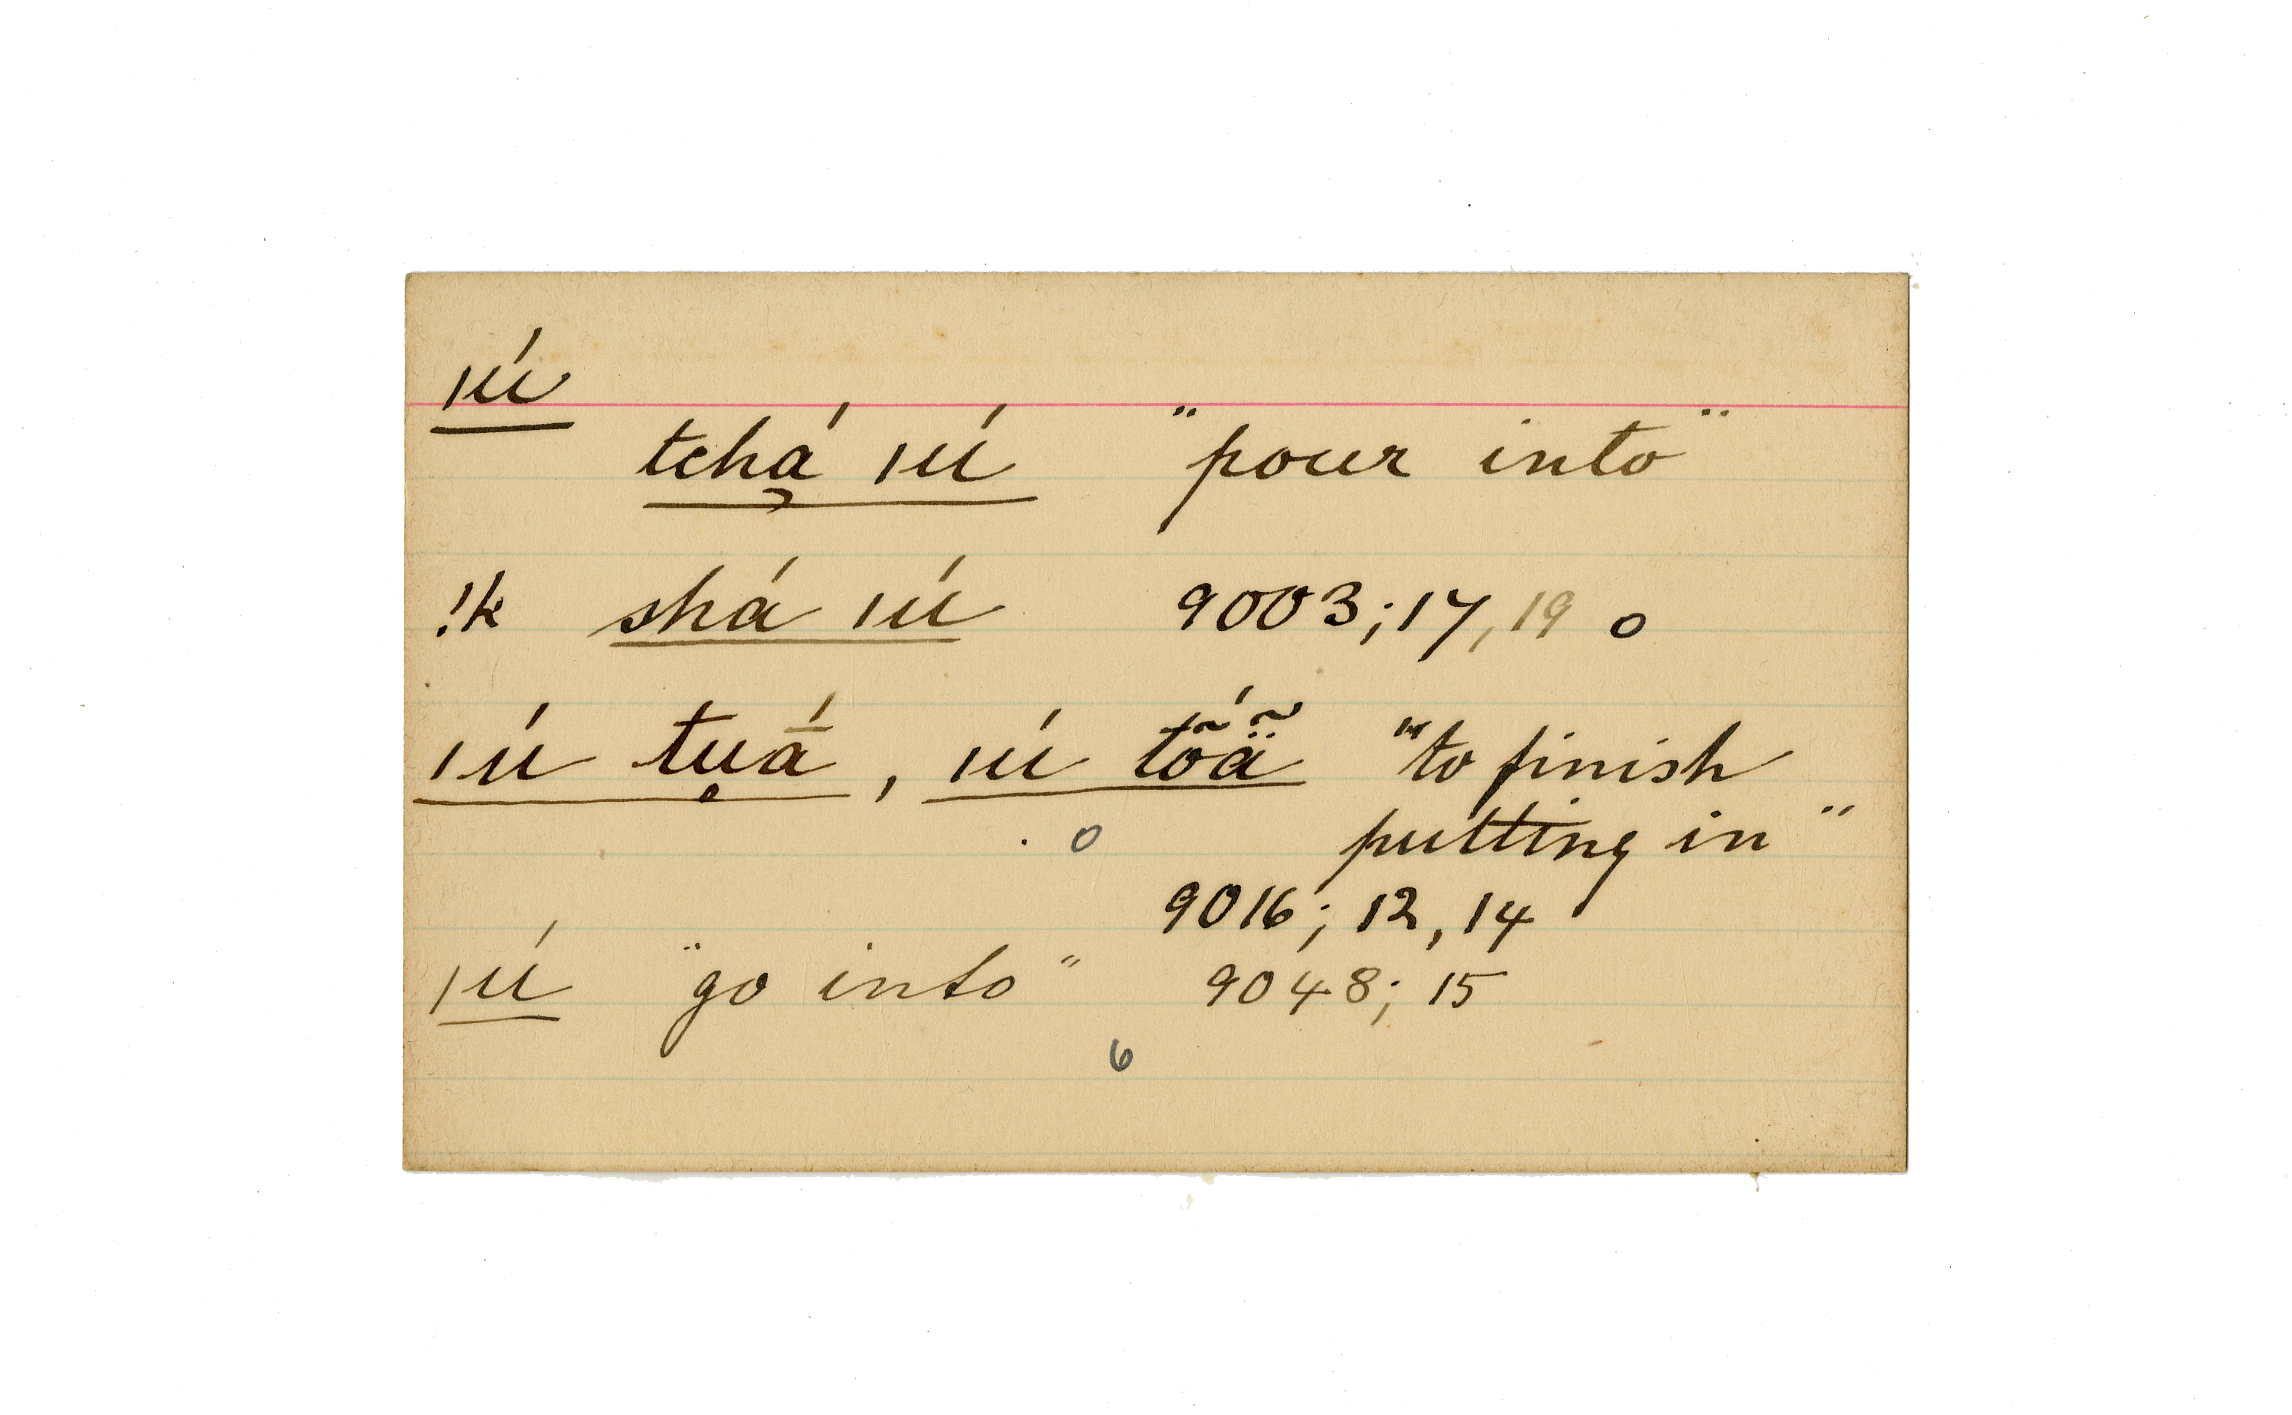 ǀú
tchá̢ ǀú "pour into"
!k shá ǀú 9003; 17, 19 o
ǀú tụā́, ǀú tõä̃́ "to finish
o putting in"
9016; 12, 14
ǀú "go into" 9048; 15
6